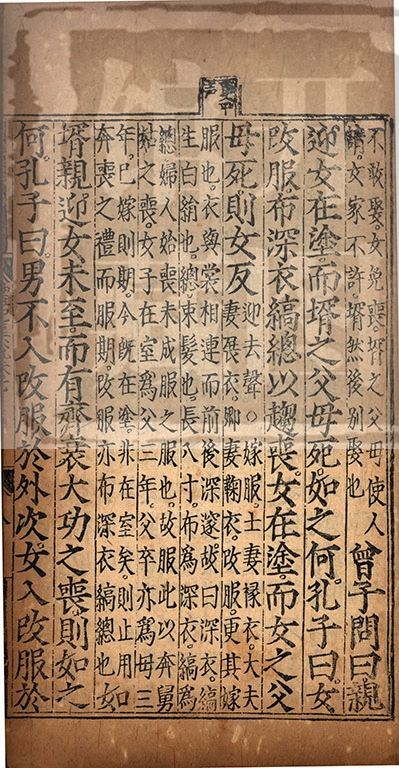 不敢娶。女免喪。壻之父母使人
請。女家不許。壻然後別娶也
曾子問曰。親
迎女在塗。而壻之父母死。如之何。孔子曰。女
改服。布深衣縞總以趨喪。女在塗。而女之父
母死。則女反
迎去聲○嫁服。士妻褖衣。大夫
妻展衣。卿妻鞠衣。改服。更其嫁
服也。衣與裳相連而前後深邃。故曰深衣。縞
生白絹也。總束髮也。長八寸。布為深衣。縞為
總。婦人始喪未成服之服也。故服此以奔舅
姑之喪。女子在室為父三年。父卒亦為母三
年。已嫁則期。今既在塗。非在室矣。則止用
奔喪之禮而服期。改服亦布深衣縞總也
如
壻親迎。女未至。而有齊衰大功之喪。則如之
何。孔子曰。男不入。改服於外次。女入。改服於